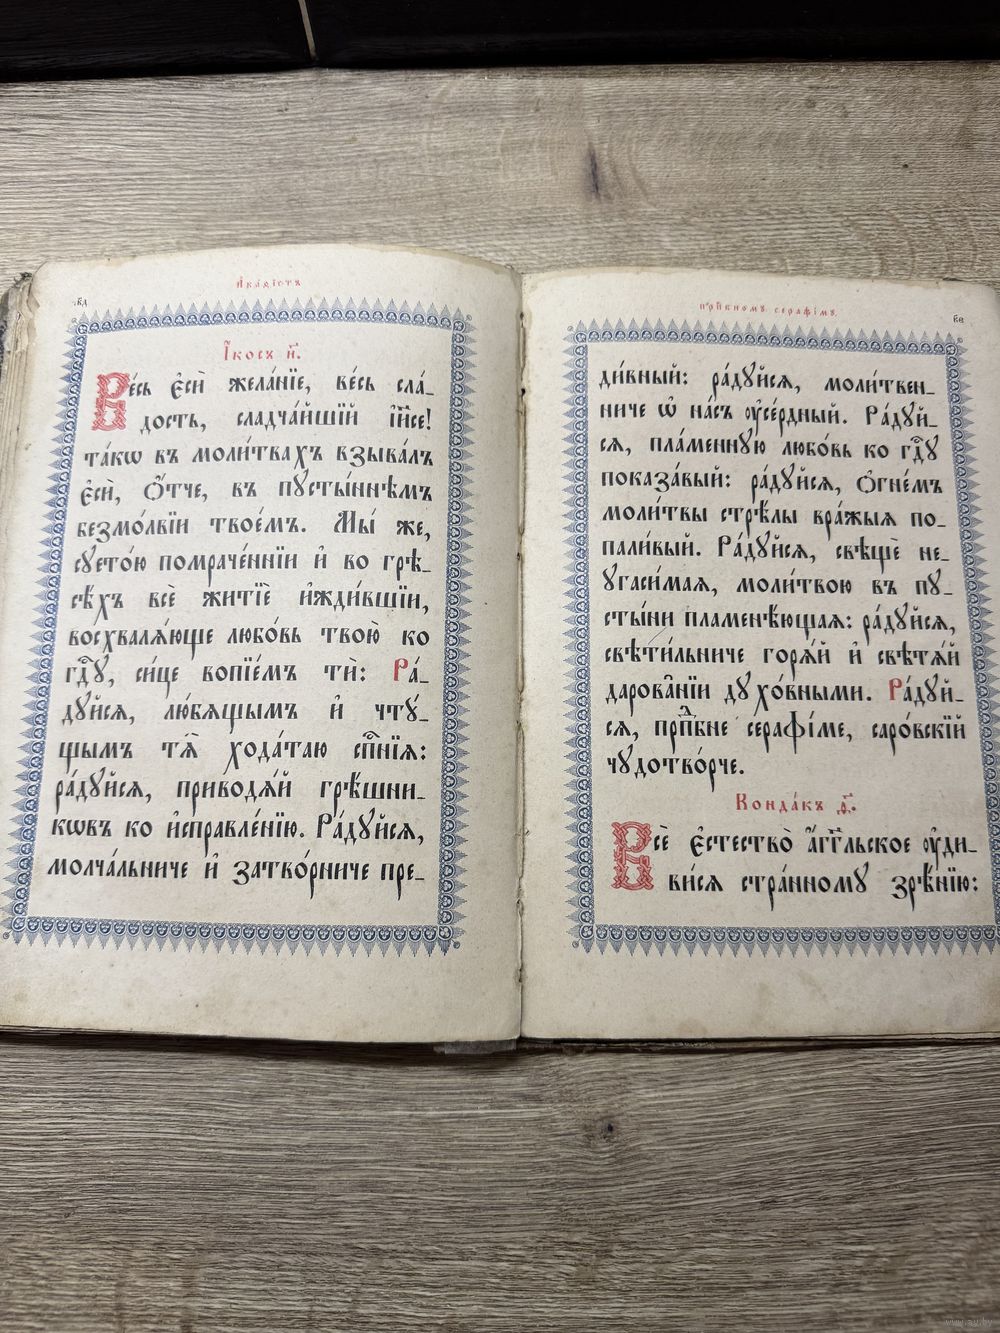 А҆ка́ѳїстъ
к҃д
І҆́косъ и҃.
Ве́сь є҆сѝ жела́нїе, ве́сь сла́-
дость, сладча́йшїй і҆и҃се!
та́кѡ въ моли́твахъ взыва́лъ
є҆сѝ, ѻ҆́тче, въ пꙋсты́ннѣмъ
безмо́лвїи твое́мъ. Мы́ же,
сꙋето́ю помраче́ннїи и҆ во грѣ-
сѣ́хъ всѐ житїѐ и҆жди́вшїи,
восхвалѧ́юще любо́вь твою̀ ко
гдⷭ҇ꙋ, си́це вопїе́мъ тѝ: Ра́-
дꙋйсѧ, лю́бѧщымъ и҆ чтꙋ́-
щымъ тѧ̀ хода́таю спⷭ҇нїѧ:
ра́дꙋйсѧ, приводѧ́й грѣ́шни-
кѡвъ ко и҆справле́нїю. Ра́дꙋйсѧ,
молча́льниче и҆ затво́рниче пре-
прпⷣбномъ серафі́мꙋ.
к҃е
ди́вный: ра́дꙋйсѧ, моли́твен-
ниче ѡ҆ на́съ ᲂу҆се́рдный. Ра́дꙋй-
сѧ, пла́меннꙋю любо́вь ко гдⷭ҇ꙋ
показа́вый: ра́дꙋйсѧ, ѻ҆гне́мъ
моли́твы стрѣ́лы вра́жыѧ по-
пали́вый. Ра́дꙋйсѧ, свѣщѐ не-
ꙋгаси́маѧ, моли́твою въ пꙋ-
сты́ни пламенѣ́ющаѧ: ра́дꙋйсѧ,
свѣти́льниче горѧ́й и҆ свѣтѧ́й
дарова̑нїи дꙋхо́вными. Ра́дꙋй-
сѧ, прпⷣбне серафі́ме, саро́вскїй
чꙋдотво́рче.
Конда́къ ѳ҃.
Всѐ є҆стество̀ а҆́гг҃льское ᲂу҆ди-
ви́сѧ стра́нномꙋ зрѣ́нїю:
www.ay.by